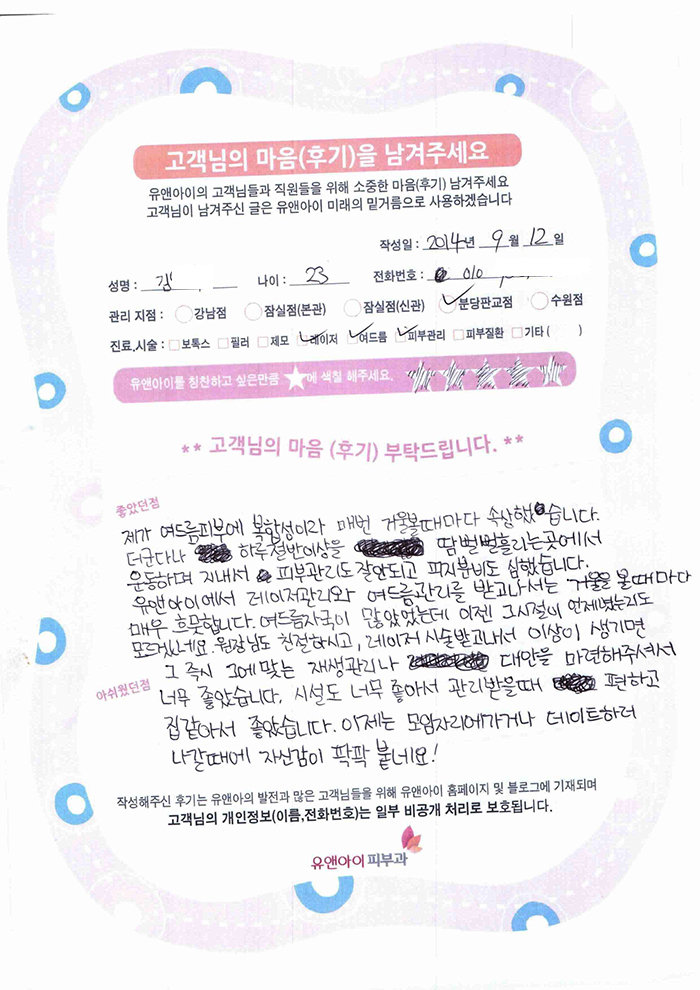 고객님의 마음(후기)을 남겨주세요
유앤아이의 고객님들과 직원들을 위해 소중한 마음(후기) 남겨주세요
고객님이 남겨주신 글은 유앤아이 미래의 밑거름으로 사용하겠습니다
작성일 : 2014년 9월 12일
성명 : 김 나이 : 23 전화번호 : 010
관리 지점 : 강남점 잠실점(본관) 잠실점(신관) 분당판교점 수원점
진료,시술 : 보톡스 필러 제모 레이저 여드름 피부관리 피부질환 기타 ( )
유앤아이를 칭찬하고 싶은만큼 ★에 색칠 해주세요.
** 고객님의 마음 (후기) 부탁드립니다. **
좋았던점
제가 여드름피부에 복합성이라 매번 거울볼때마다 속상했습니다.
더군다나 하루절반이상을 땀뻘뻘흘리는곳에서
운동하며 지내서 피부관리도 잘안되고 피지분비도 심했습니다.
유앤아이에서 레이저관리와 여드름관리를 받고나서는 거울을 볼때마다
매우 흐뭇합니다. 여드름자국이 많았었는데 이젠 그시절이 언제였는지도
모르겠네요. 원장님도 친절하시고, 레이저 시술받고나서 이상이 생기면
그 즉시 그에맞는 재생관리나 대안을 마련해주셔서
아쉬웠던점
너무 좋았습니다. 시설도 너무 좋아서 관리받을때 편하고
집같아서 좋았습니다. 이제는 모임자리에가거나 데이트하러
나갈때에 자신감이 팍팍 붙네요!
작성해주신 후기는 유앤아의 발전과 많은 고객님들을 위해 유앤아이 홈페이지 및 블로그에 기재되며
고객님의 개인정보(이름,전화번호)는 일부 비공개 처리로 보호됩니다.
유앤아이피부과